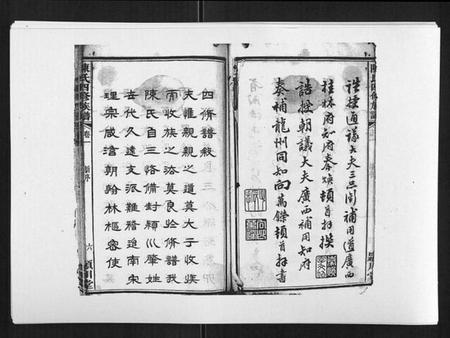 誥授通議大夫三品銜補用道廣西
桂林府知府秦煥頓首拜撰
誥授朝議大夫廣西補用知府
奏補龍州同知向萬鑅頓首拜書
陳氏四修族譜
卷一
新序
六
四脩譜敘
夫維親親之道莫大于收族
而收族之法莫良於脩譜我
陳氏自三恪備封潁川肇姓
去代久遠支派難稽迨南宋
理宗咸淳朝翰林樞密使